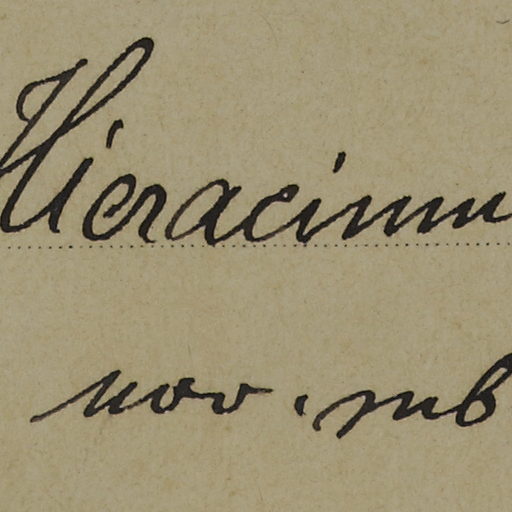 Hieracium
nov. sub